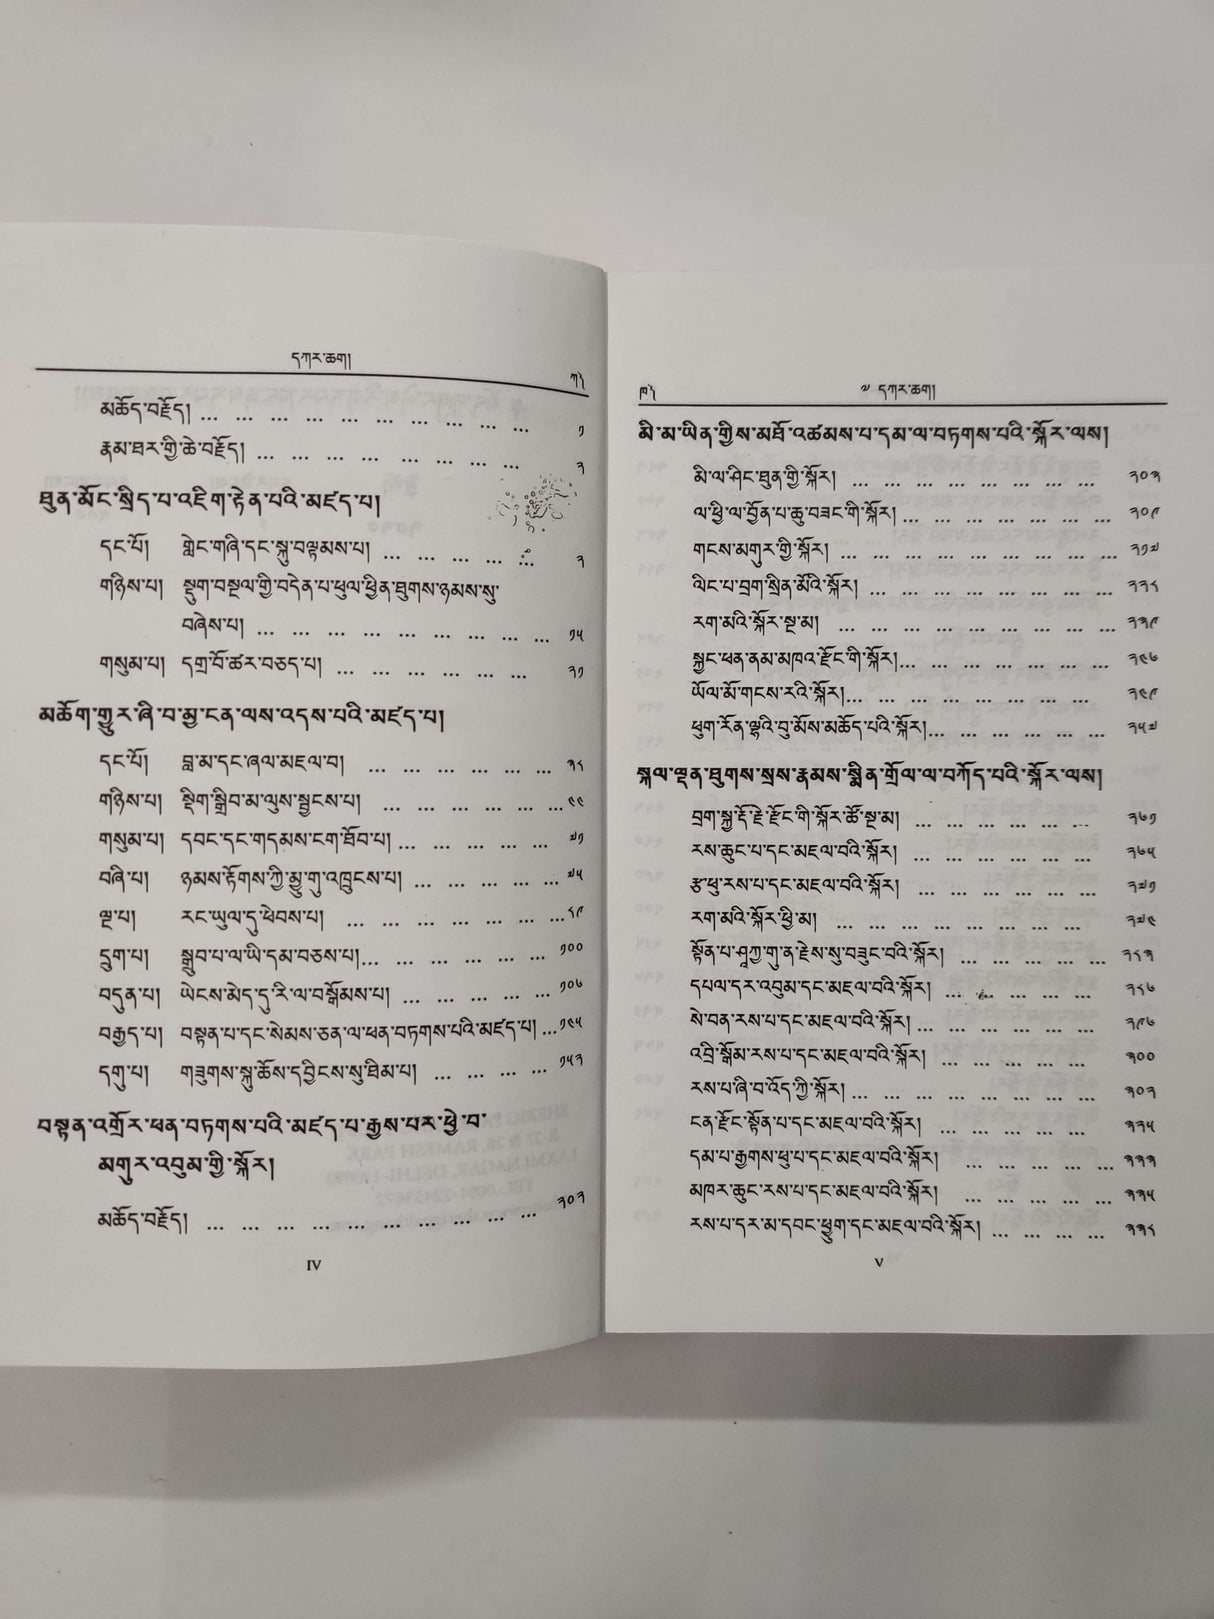 དཀར་ཆག།
ཀ༽
མཆོད་བརྗོད། ... ... ... ... ... ... ... ... ... ... ༡
རྣམ་ཐར་གྱི་ཆེ་བརྗོད། ... ... ... ... ... ... ... ... ༢
ཐུན་མོང་སྲིད་པ་འཇིག་རྟེན་པའི་མཛད་པ།
དང་པོ། གླེང་གཞི་དང་སྐུ་བལྟམས་པ། ... ... ... ... ... ༢
གཉིས་པ། སྡུག་བསྔལ་གྱི་བདེན་པ་ཕུལ་ཕྱིན་ཐུགས་ཉམས་སུ་
བཞེས་པ། ... ... ... ... ... ... ... ... ... ༡༥
གསུམ་པ། དགྲ་བོ་ཚར་བཅད་པ། ... ... ... ... ... ... ༢༡
མཆོག་གྱུར་ཞི་བ་མྱ་ངན་ལས་འདས་པའི་མཛད་པ།
དང་པོ། བླ་མ་དང་ཞལ་མཇལ་བ། ... ... ... ... ... ... ༣༨
གཉིས་པ། སྡིག་སྒྲིབ་མ་ལུས་སྦྱངས་པ། ... ... ... ... ... ... ༤༤
གསུམ་པ། དབང་དང་གདམས་ངག་ཐོབ་པ། ... ... ... ... ... ༧༡
བཞི་པ། ཉམས་རྟོགས་ཀྱི་མྱུ་གུ་འཁྲུངས་པ། ... ... ... ... ... ༧༥
ལྔ་པ། རང་ཡུལ་དུ་ཕེབས་པ། ... ... ... ... ... ... ... ༨༩
དྲུག་པ། སྒྲུབ་པ་ལ་ཡི་དམ་བཅས་པ།... ... ... ... ... ... ༡༠༠
བདུན་པ། ཡེངས་མེད་དུ་རི་ལ་བསྒོམས་པ། ... ... ... ... ... ༡༠༦
བརྒྱད་པ། བསྟན་པ་དང་སེམས་ཅན་ལ་ཕན་བཏགས་པའི་མཛད་པ། ...༡༤༥
དགུ་པ། གཟུགས་སྐུ་ཆོས་དབྱིངས་སུ་ཐིམ་པ། ... ... ... ... ༡༥༢
བསྟན་འགྲོར་ཕན་བཏགས་པའི་མཛད་པ་རྒྱས་པར་ཕྱེ་བ་
མགུར་འབུམ་གྱི་སྐོར།
མཆོད་བརྗོད། ... ... ... ... ... ... ... ... ... ... ༢༠༢
IV
ཁ༽
༧ དཀར་ཆག།
མི་མ་ཡིན་གྱིས་མཐོ་འཚམས་པ་དམ་ལ་བཏགས་པའི་སྐོར་ལས།
མི་ལ་ཤིང་ཐུན་གྱི་སྐོར། ... ... ... ... ... ... ... ... ༢༠༣
ལ་ཕྱི་ལ་བྱོན་པ་ཆུ་བཟང་གི་སྐོར། ... ... ... ... ... ... ... ༢༠༩
གངས་མགུར་གྱི་སྐོར། ... ... ... ... ... ... ... ... ... ༢༡༧
ལིང་པ་བྲག་སྲིན་མོའི་སྐོར། ... ... ... ... ... ... ... ... ༢༢༨
རག་མའི་སྐོར་སྔ་མ། ... ... ... ... ... ... ... ... ... ༢༣༩
སྐྱང་ཕན་ནམ་མཁའ་རྫོང་གི་སྐོར།... ... ... ... ... ... ... ༢༤༦
ཡོལ་མོ་གངས་རའི་སྐོར།... ... ... ... ... ... ... ... ༢༤༩
ཕུག་རོན་ལྷའི་བུ་མོས་མཆོད་པའི་སྐོར།... ... ... ... ... ... ༢༥༧
སྐལ་ལྡན་ཐུགས་སྲས་རྣམས་སྨིན་གྲོལ་ལ་བཀོད་པའི་སྐོར་ལས།
བྲག་སྐྱ་རྡོ་རྗེ་རྫོང་གི་སྐོར་ཚོ་སྔ་མ། ... ... ... ... ... ... ༢༦༡
རས་ཆུང་པ་དང་མཇལ་བའི་སྐོར། ... ... ... ... ... ... ༢༦༥
རྩ་ཕུ་རས་པ་དང་མཇལ་བའི་སྐོར། ... ... ... ... ... ... ༢༧༡
རག་མའི་སྐོར་ཕྱི་མ། ... ... ... ... ... ... ... ... ༢༧༤
སྟོན་པ་ཤཱཀྱ་གུ་ན་རྗེས་སུ་བཟུང་བའི་སྐོར། ... ... ... ... ... ༢༨༣
དཔལ་དར་འབུམ་དང་མཇལ་བའི་སྐོར། ... ... ... ... ... ༢༨༦
སེ་བན་རས་པ་དང་མཇལ་བའི་སྐོར། ... ... ... ... ... ... ༢༩༦
འབྲི་སྒོམ་རས་པ་དང་མཇལ་བའི་སྐོར། ... ... ... ... ... ༣༠༠
རས་པ་ཞི་བ་འོད་ཀྱི་སྐོར། ... ... ... ... ... ... ... ... ༣༠༢
ངན་རྫོང་སྟོན་པ་དང་མཇལ་བའི་སྐོར། ... ... ... ... ... ༣༢༥
དམ་པ་རྒྱགས་ཕུ་པ་དང་མཇལ་བའི་སྐོར། ... ... ... ... ... ༣༣༣
མཁར་ཆུང་རས་པ་དང་མཇལ་བའི་སྐོར། ... ... ... ... ... ༣༣༥
རས་པ་དར་མ་དབང་ཕྱུག་དང་མཇལ་བའི་སྐོར། ... ... ... ... ༣༣༨
V